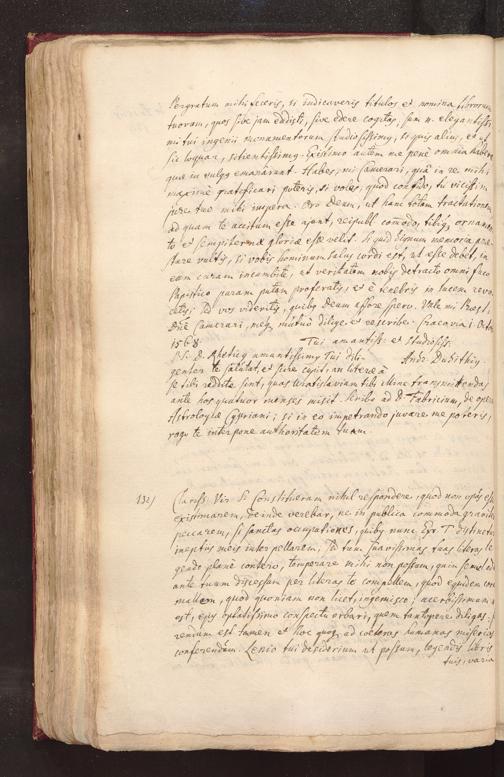 Pergratum mihi feceris, si indicaveris titulos et nomina librorum
tuorum, quos sive jam edidisti, sive edere cogitas, sum n. elegantiss
mi tui ingenii monumentorum studiosissimq, si quis alius, et ut
sic loquar, sitientissimq. Existimo autem me penè omnia habere
quae in vulgq emanarunt. Habes, mi Camerari, quâ in re mihi
maximè gratificari poteris, si voles, quod confido, tu vicissim
jure tuo mihi impera. Oro Deum, ut hanc totam tractationem
ad quam te accitum esse ajunt, reipubl. comodo, tibiq ornamen
to et sempiternae gloriae esse velit. Si quid dignum memoria prae
stare vultis, si vobis hominum salus cordi est, ut esse debet, in
eam curam incumbite, ut veritatem nobis detracto omni fuco
Papistico puram putam proferatis, et è tenebris in lucem revo
cetis; Sed vos videritis, quibq Deum affore spero. Vale mi Praest.
Dne Camerari, meq mutuò dilige et rescribe. Cracovia 1. Oct.
1568. Tui amantiss. et studiosiss.
P.S. D. diligen Andr. Dudithiq.
genter te salutat, et scire cupit, an literae
se tibi redditae sint, quas Wratislaviam tibi illinc transmittendas
ante hos quatuor menses misit. Scribo ad D. Fabricium, de opere
Astrologiae Cypriani; si in eo impetrando juvare me poteris,
rogo te interpone authoritatem tuam.
132) Clariss. Vir. Si constitueram nihil respondere, quod non opus esse
existimarem, deinde verebar, ne in publica commoda graviter
peccarem, si sanctas occupationes, quibq nunc Exc. T. distinetur
ineptiis meis interpellarem, Sed tum suavissimas tuas literas le
gendo planè contero, temperare mihi non possum, quin semel ad
ante tuum discessum per literas te compellem, quod equidem coram
mallem, quod quoniam non licet, ingemisco: acerbissimum n.
est, ejus optatissimo conspectu orbari, quem tantopere diligas.
rendum est tamen et hoc quoq ad coeteras humanas miserias
conferendum. Lenio tui desiderium ut possum, legendis libris
tuis, varia